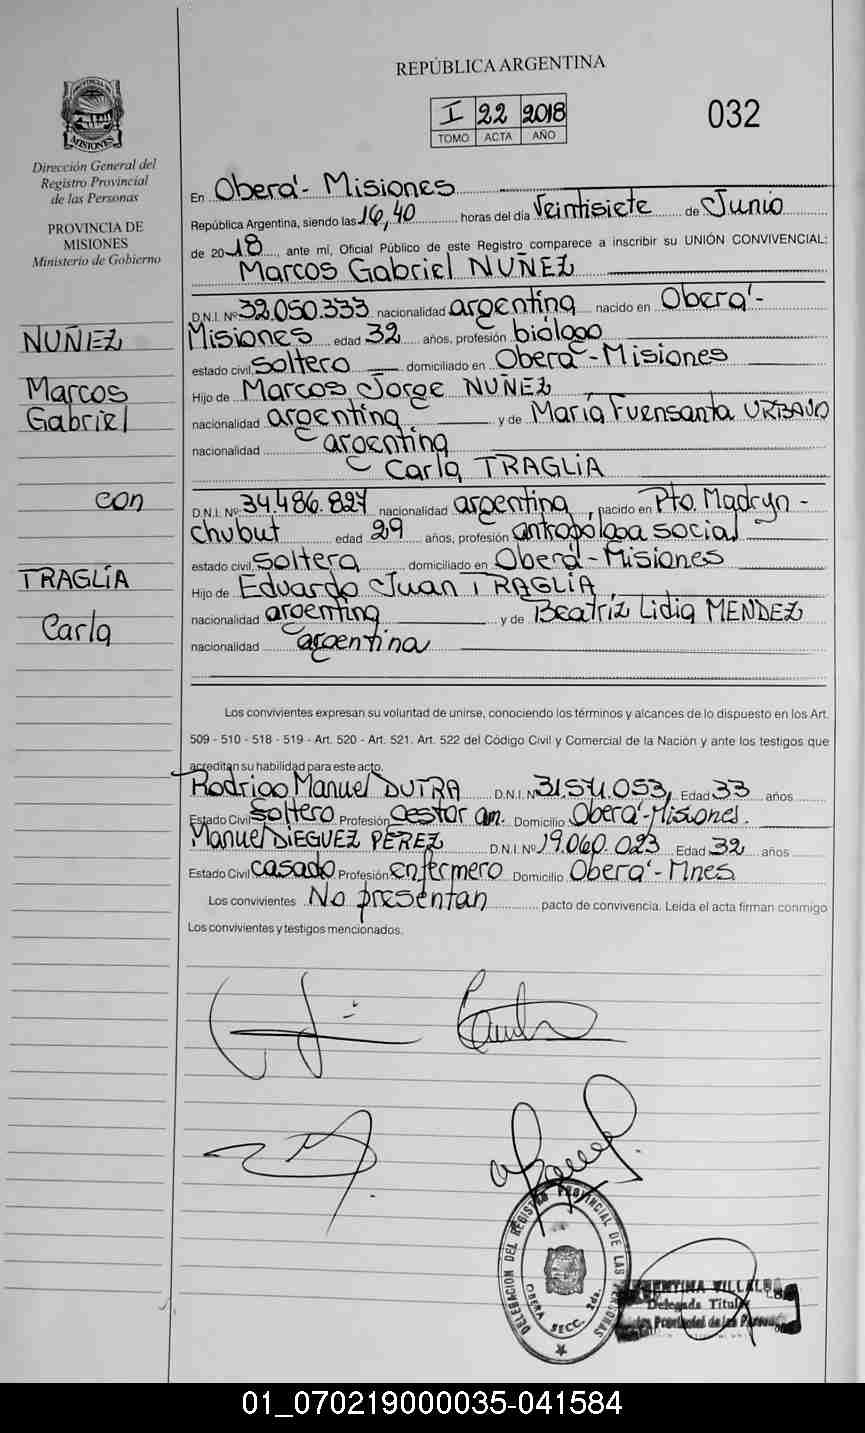 REPÚBLICA ARGENTINA
I 22 2018
TOMO ACTA AÑO
032
Dirección General del
Registro Provincial
de las Personas
PROVINCIA DE
MISIONES
Ministerio de Gobierno
NUÑEZ
Marcos
Gabriel
con
TRAGLIA
Carla
En Oberá - Misiones
República Argentina, siendo las 16,40 horas del día Veintisiete de Junio
de 2018, ante mí, Oficial Público de este Registro comparece a inscribir su UNIÓN CONVIVENCIAL:
Marcos Gabriel NUÑEZ
D.N.I. Nº 32.050.333 nacionalidad argentina nacido en Oberá -
Misiones edad 32 años, profesión biólogo
estado civil, soltero domiciliado en Oberá - Misiones
Hijo de Marcos Jorge NUÑEZ
nacionalidad argentina y de María Fuensanta URBAJO
nacionalidad argentina
Carla TRAGLIA
D.N.I. Nº 34.486.827 nacionalidad argentina, nacido en Pto. Madryn -
Chubut edad 29 años, profesión antropóloga social
estado civil, soltera domiciliado en Oberá - Misiones
Hijo de Eduardo Juan TRAGLIA
nacionalidad argentina y de Beatriz Lidia MENDEZ
nacionalidad argentina
Los convivientes expresan su voluntad de unirse, conociendo los términos y alcances de lo dispuesto en los Art.
509 - 510 - 518 - 519 - Art. 520 - Art. 521. Art. 522 del Código Civil y Comercial de la Nación y ante los testigos que
acreditan su habilidad para este acto.
Rodrigo Manuel DUTRA D.N.I. Nº 31.571.053, Edad 33 años
Estado Civil soltero Profesión Gestor am. Domicilio Oberá - Misiones.
Manuel DIEGUEZ PEREZ D.N.I. Nº 19.060.023 Edad 32 años
Estado Civil casado Profesión enfermero Domicilio Oberá - Mnes
Los convivientes No presentan pacto de convivencia. Leída el acta firman conmigo
Los convivientes y testigos mencionados.
DELEGACION DEL REGISTRO PROVINCIAL DE LAS PERSONAS
OBERA SECC. 2da.
Delegada Titular
01_070219000035-041584